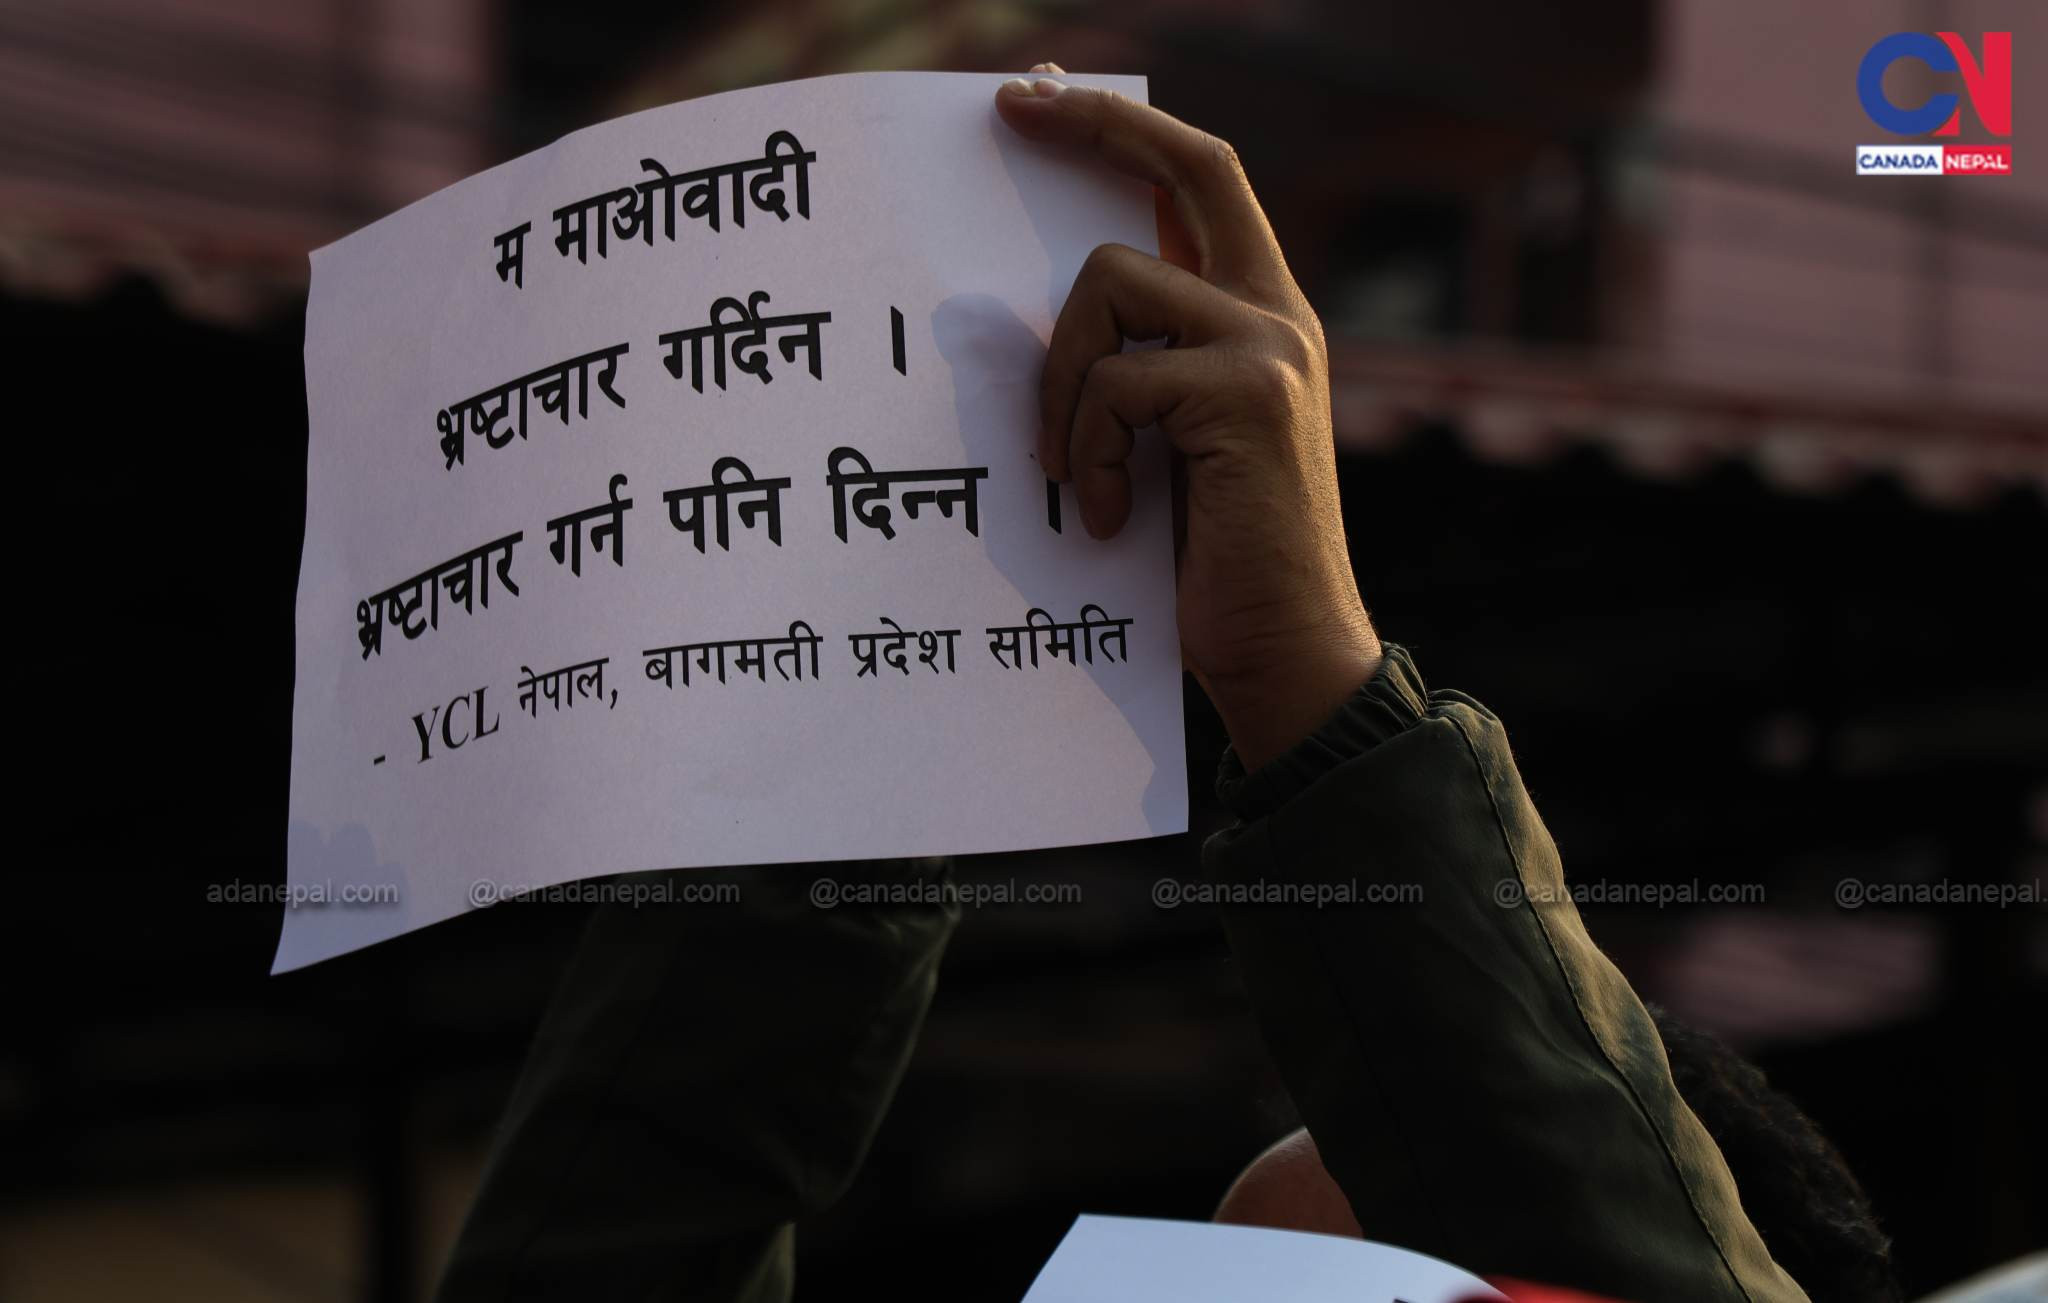 म माओवादी
भ्रष्टाचार गर्दिन ।
भ्रष्टाचार गर्न पनि दिन्न ।
- YCL नेपाल, बागमती प्रदेश समिति
CN
CANADA NEPAL
adanepal.com @canadanepal.com @canadanepal.com @canadanepal.com @canadanepal.com @canadanepal.